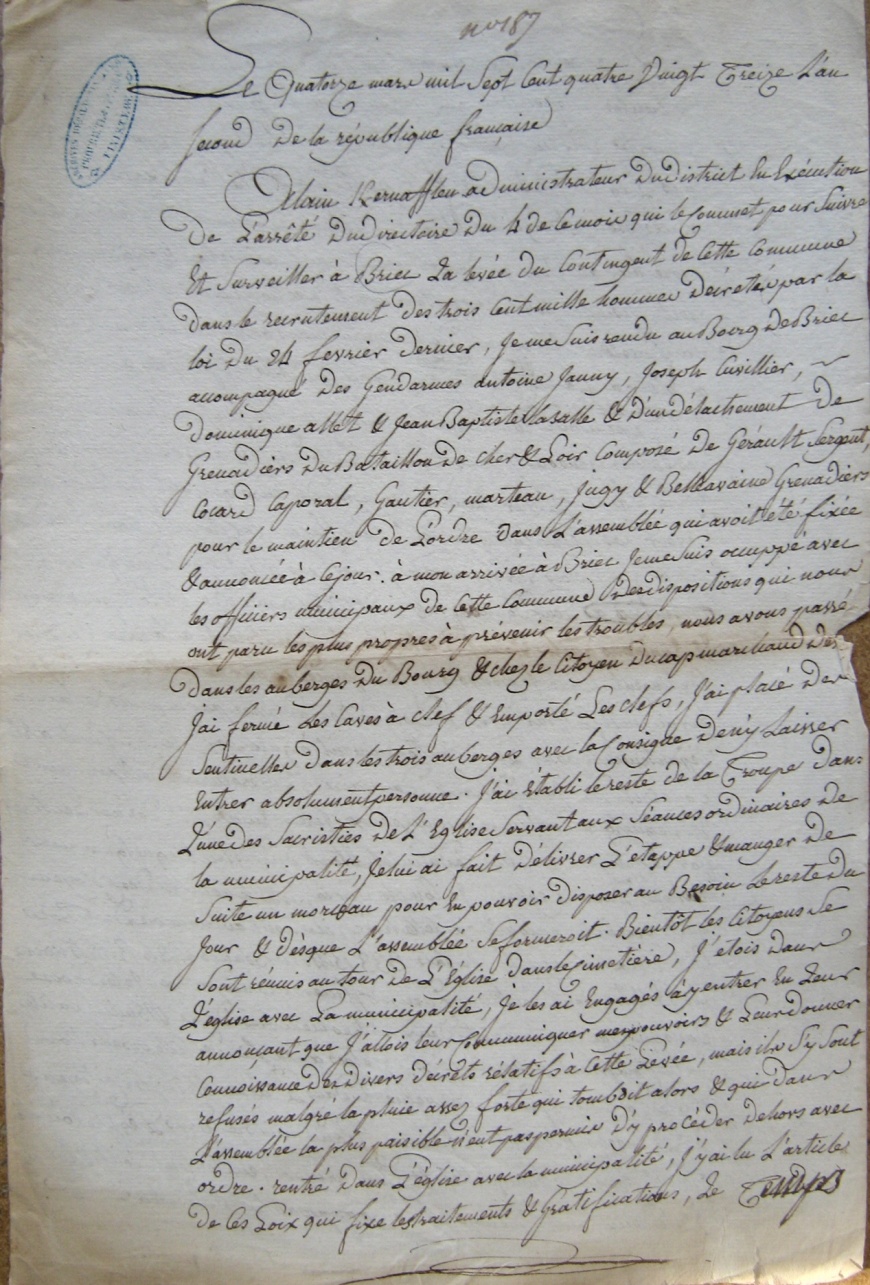 nº 187
Le Quatorze mars mil Sept Cent quatre Vingt Treize L'an
second De la république française
Alain Kernafflen administrateur Du District En Exécution
De L'arrêté Du Directoire Du 4 de ce mois qui le Commet pour Suivre
Et Surveiller à Briec La levée du Contingent de Cette Commune
dans le recrutement des trois Cent mille hommes Décretés par la
loi Du 24 fevrier Dernier, Je me Suis rendu au Bourg De Briec
accompagné Des Gendarmes antoine Jauny, Joseph Cuvillier,
Dominique allet & Jean Baptiste Lasalle & D'un détachement De
Grenadiers Du Bataillon De cher & Loir Composé De Gérault Sergent,
Cocard Caporal, Gautier, marteau, Jugy & Bellavaine Grenadiers
pour le maintien de L'ordre Dans L'assemblée qui avoit été fixée
& annoncée à ce jour. à mon arrivée à Briec Je me Suis occuppé avec
les officiers municipaux de Cette Commune Des dispositions qui nous
ont paru les plus propres à prévenir les troubles, nous avons passé
Dans les auberges Du Bourg & chez le Citoyen Ducap marchand De
J'ai fermé Les Caves à clef & Emporté Les clefs, J'ai placé Des
Sentinelles Dans les trois auberges avec la Consigne De n'y Laisser
Entrer absolument personne. J'ai Etabli le reste de la Troupe Dans
L'une des Sacristies De L'Eglise Servant aux Séances ordinaires De
la municipalité, Je lui ai fait Délivrer L'etappe & manger De
Suite un morceau pour En pouvoir Disposer au Besoin Le reste Du
Jour & Dèsque L'assemblée Se formeroit. Bientôt les Citoyens Se
Sont réunis au tour De L'Eglise Dans le Cimetière, J'étois Dans
L'église avec La municipalité, Je les ai Engagés à y entrer En Leur
annonçant que J'allois leur Communiquer mes pouvoirs & Leur Donner
Connoissance Des Divers Décrets rélatifs à Cette Levée, mais ils S'y Sont
refusés malgré la pluie assez forte qui tomboit alors & qui Dans
L'assemblée la plus paisible n'eut pas permis D'y procéder Dehors avec
ordre. rentré Dans L'église avec la municipalité, J'y ai lu L'article
de Ces Loix qui fixe les traitements & Gratifications, Le Temps